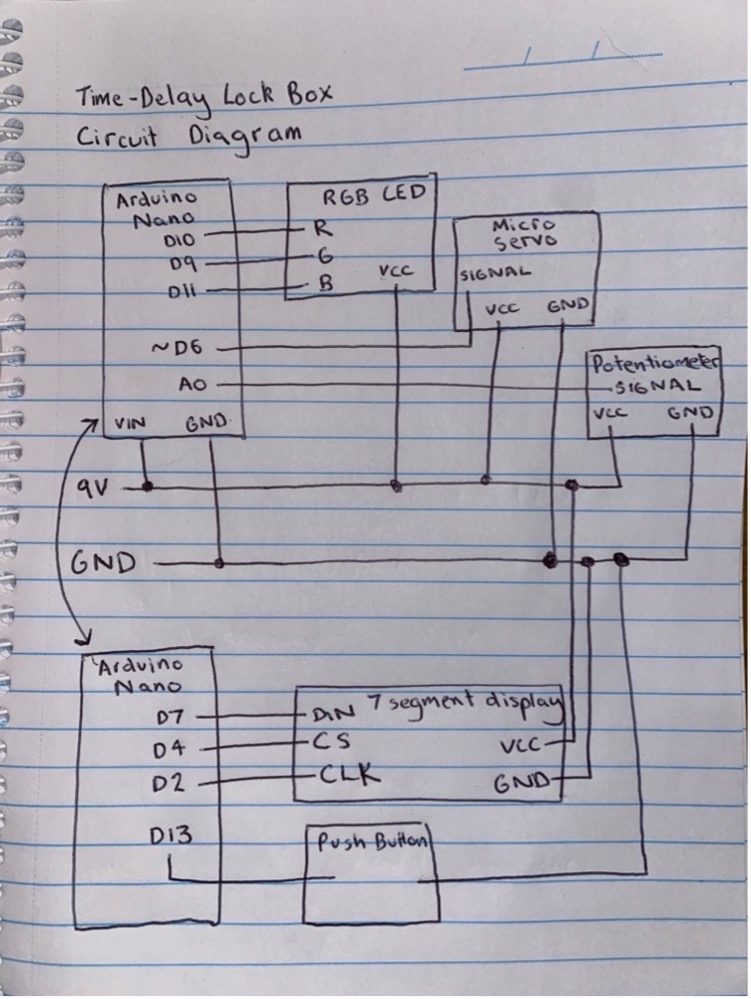 Time-Delay Lock Box
Circuit Diagram
Arduino
Nano
D10
D9
D11
~D6
A0
VIN GND
RGB LED
R
G
B
VCC
Micro
Servo
SIGNAL
VCC GND
Potentiometer
SIGNAL
VCC GND
9V
GND
Arduino
Nano
D7
D4
D2
D13
7 segment display
DIN
CS
CLK
VCC
GND
Push Button